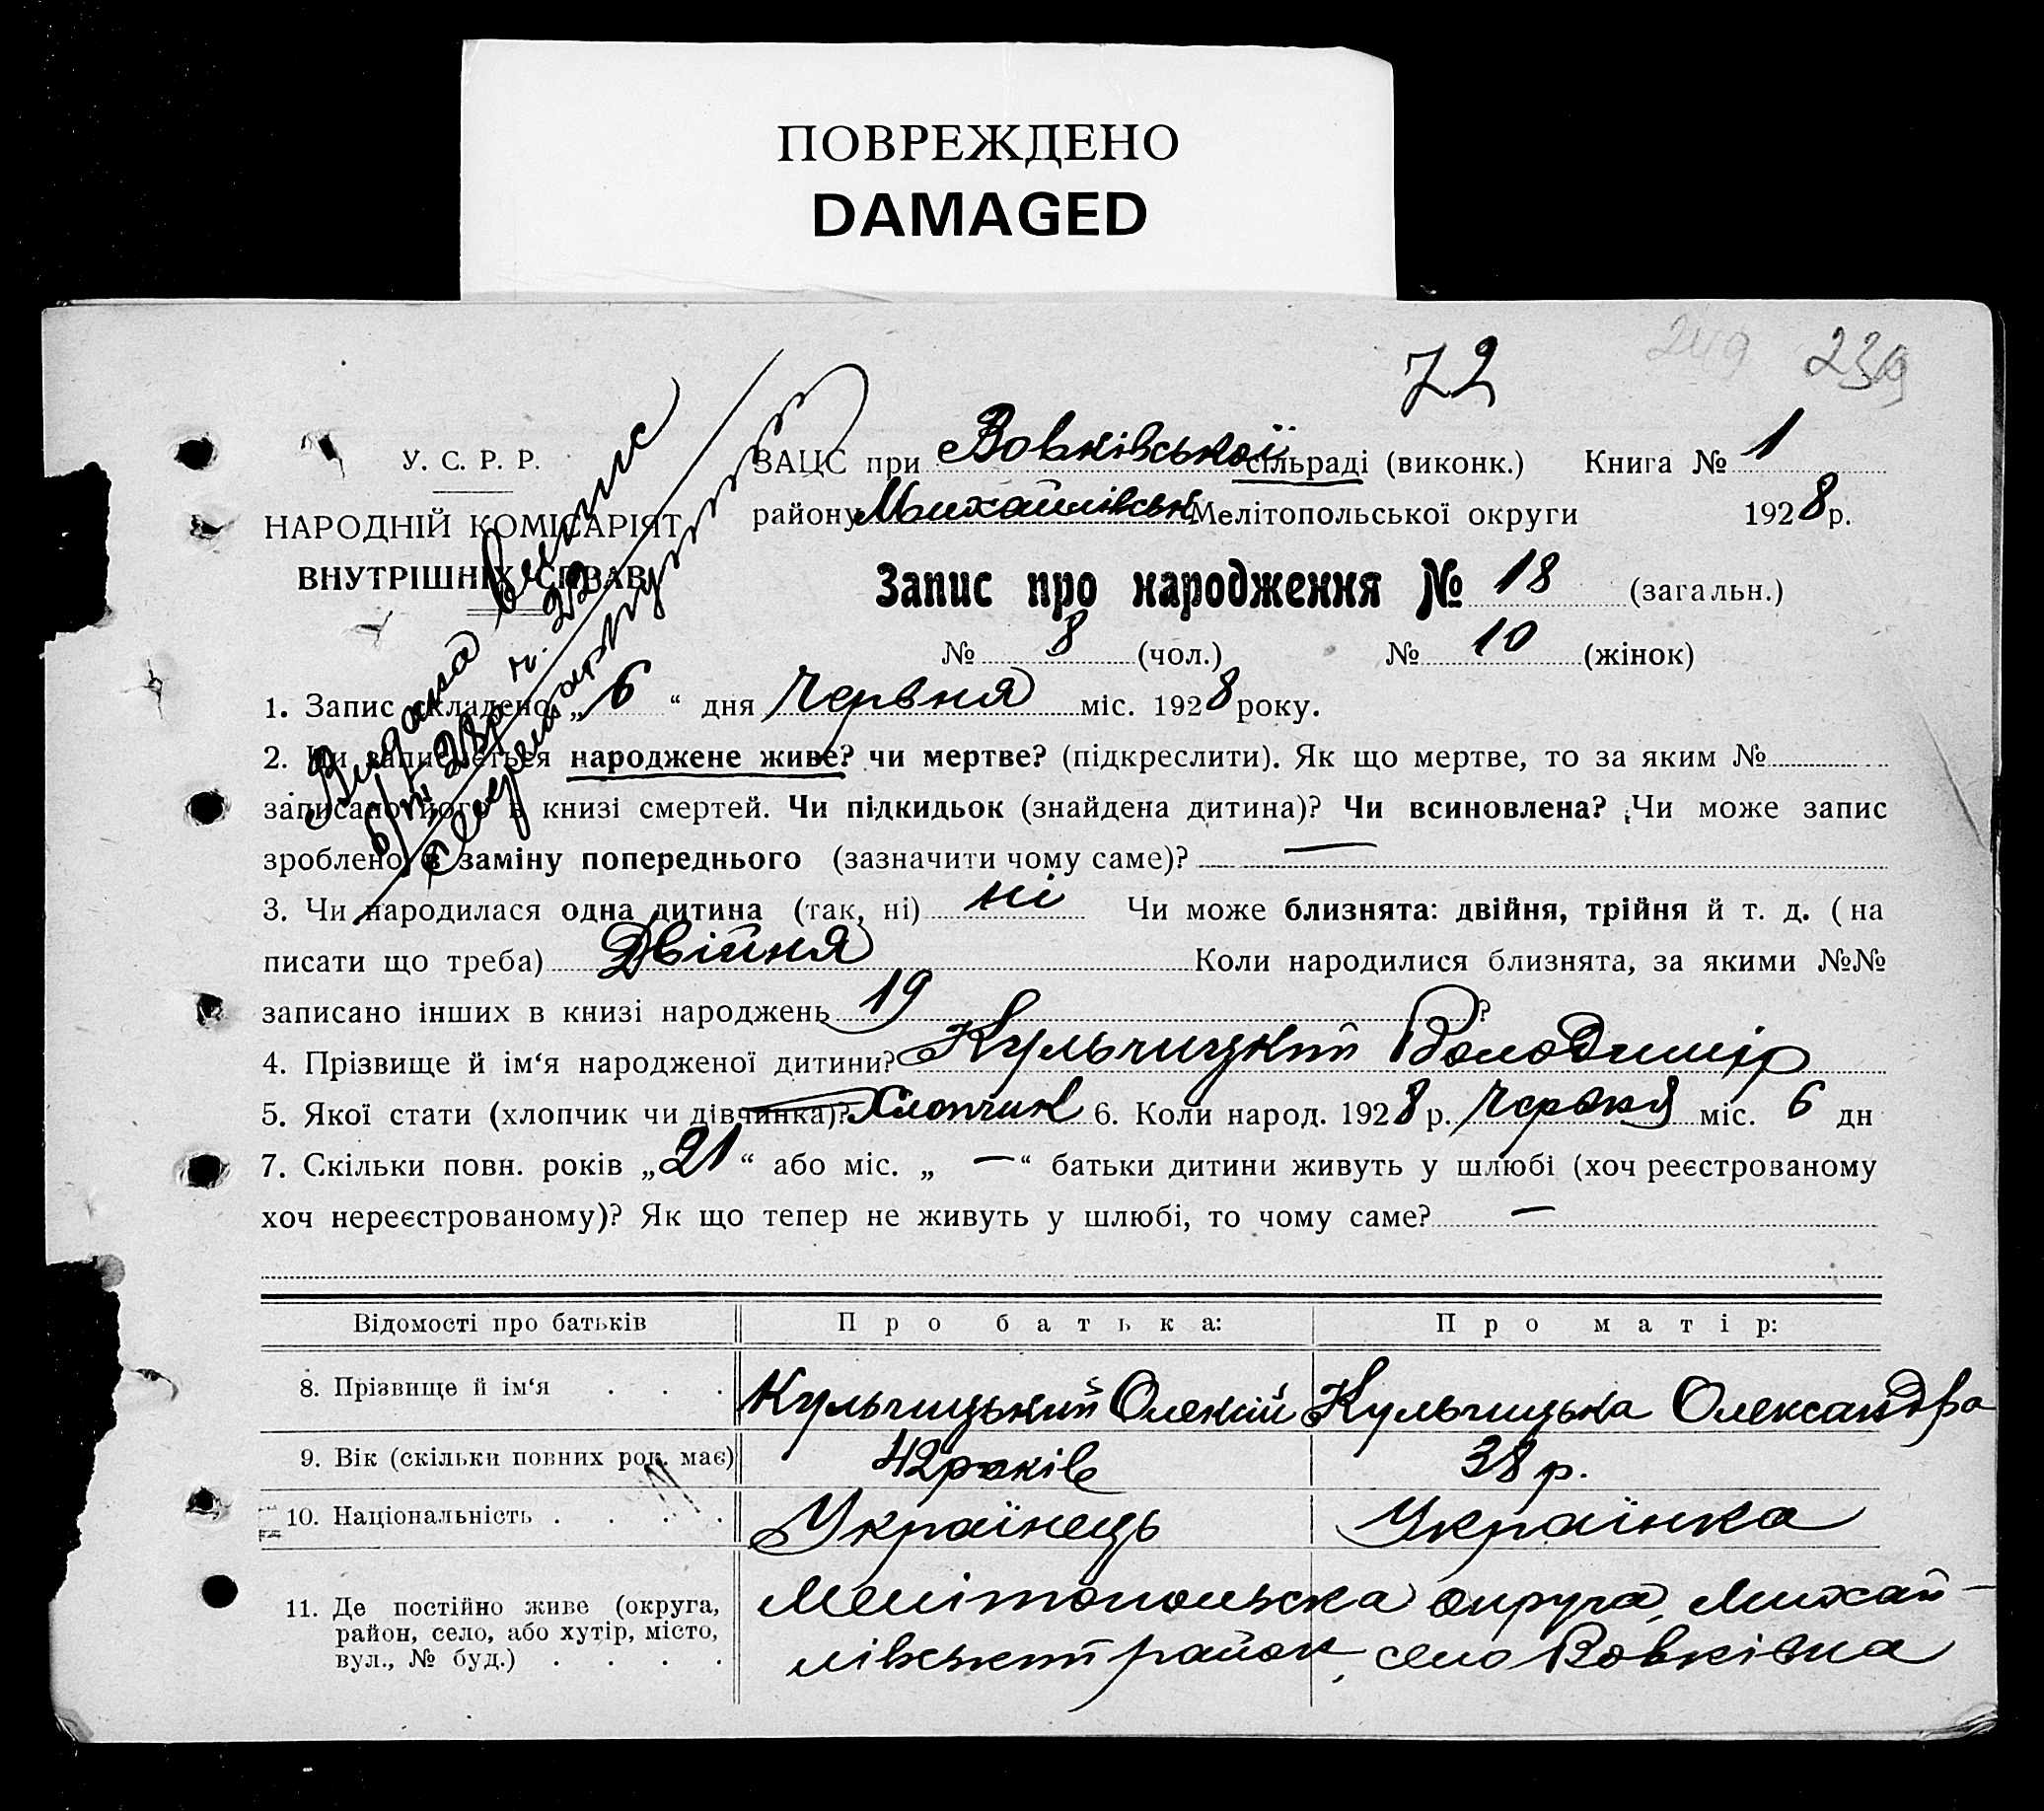 ПОВРЕЖДЕНО
DAMAGED
72
249
239
У. С. Р. Р.
НАРОДНІЙ КОМІСАРІЯТ
ВНУТРІШНІХ СПРАВ
Видана випис
6/VI 28р. н. 22
Секретар
ЗАЦС при Вовківської сільраді (виконк.) Книга № 1
району Михайлівськ Мелітопольської округи 1928 р.
Запис про народження № 18 (загальн.)
№ 8 (чол.) № 10 (жінок)
1. Запис складено „ 6 “ дня Червня міс. 1928 року.
2. Чи записується народжене живе? чи мертве? (підкреслити). Як що мертве, то за яким №
записано його в книзі смертей. Чи підкидьок (знайдена дитина)? Чи всиновлена? Чи може запис
зроблено в заміну попереднього (зазначити чому саме)? —
3. Чи народилася одна дитина (так, ні) ні Чи може близнята: двійня, трійня й т. д. (на
писати що треба) Двійня Коли народилися близнята, за якими №№
записано інших в книзі народжень 19 ?
4. Прізвище й ім‘я народженої дитини? Кульчицкий Володимір
5. Якої стати (хлопчик чи дівчинка)? Хлопчик 6. Коли народ. 1928 р. Червня міс. 6 дн
7. Скільки повн. років „ 21 “ або міс. „ — “ батьки дитини живуть у шлюбі (хоч реєстрованому
хоч нереєстрованому)? Як що тепер не живуть у шлюбі, то чому саме? —
Відомості про батьків Про батька: Про матір:
8. Прізвище й ім‘я . . . Кульчицький Олексій Кульчицька Олександра
9. Вік (скільки повних рок. має) 42 років 38 р.
10. Національність . . . . Українець Українка
11. Де постійно живе (округа, район, село, або хутір, місто, вул., № буд.) . . . . Мелітопольська округа, Михай-
лівський район, село Вовківка